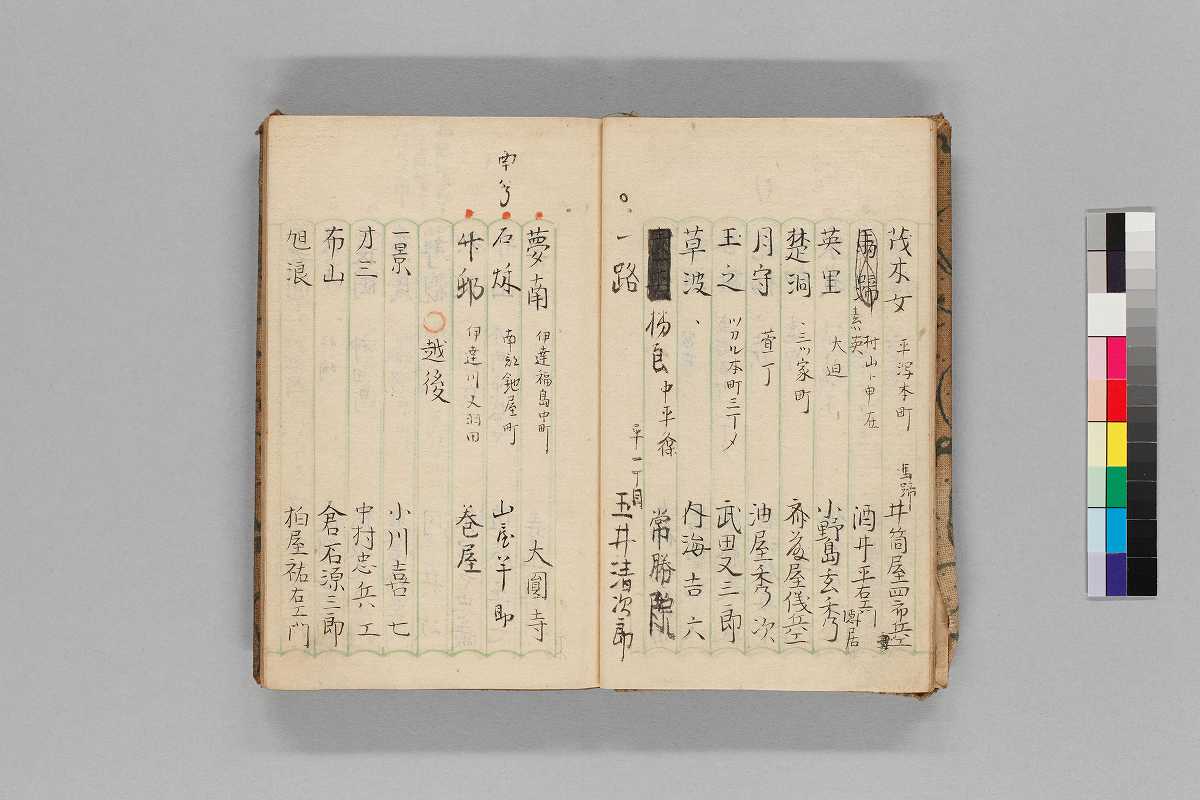 茂木女 平泻本町 馬蹄 井筒屋四市兵エ
馬蹄 素英 村山ト申在 酒井平右エ門 隠居
英里 大迫 小野島玄秀
楚洞 三ツ家町 斎藤屋儀兵エ
月守 萱丁 油屋秀次
王之 ツカル本町三丁メ 武田又三郎
草波 、 内海吉六
楊良 中平 常勝院
一路 平一丁目 玉井清次郎
夢南 伊達福島中町 大圓寺
石 南 町 山 羊
邨 伊達川又 羽田 巻屋
越後
一景 小川喜七
才三 中村忠兵エ
布山 倉石源三郎
旭浪 柏屋祐右エ門